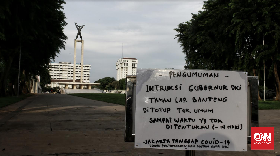 PENGUMUMAN -
INTRUKSI GUBERNUR DKI
TAMAN LAP. BANTENG
DITUTUP TUK UMUM
SAMPAI WAKTU YG TDK
DITENTUKAN
JAKARTA TANGGAP COVID-19
CNN